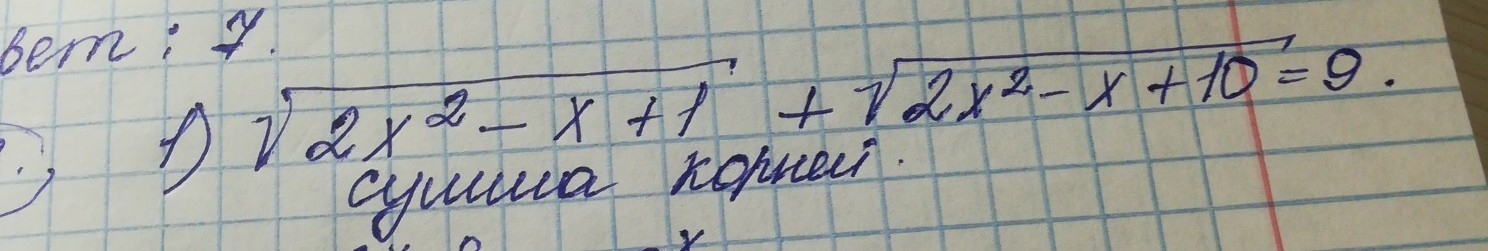 вет: 7.
1) √2x² - x + 1 + √2x² - x + 10 = 9.
сумма корней.